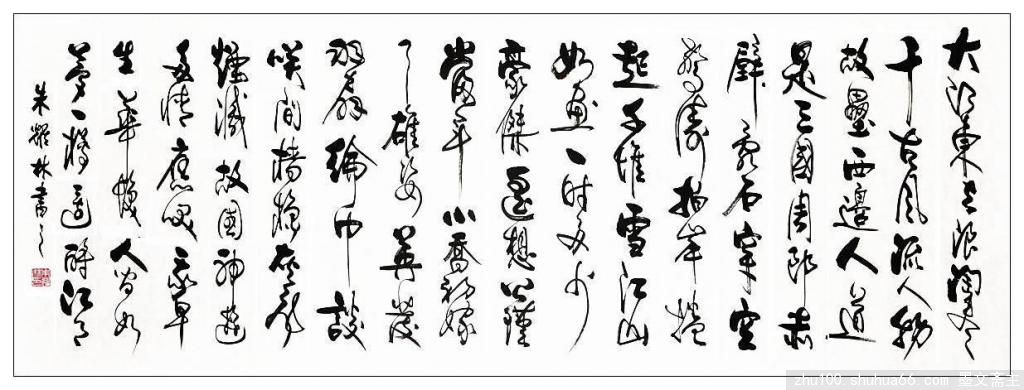 大江東去浪淘盡
千古風流人物
故壘西邊人道
是三國周郎赤
壁亂石穿空
驚濤拍岸捲
起千堆雪江山
如畫一時多少
豪傑遥想公瑾
當年小喬初嫁
了雄姿英發
羽扇綸巾談
笑間檣櫓灰飛
煙滅故國神遊
多情應笑我早
生華髮人間如
夢一樽還酹江月
朱耀林書之
zhu100.shuhua66.com 墨文斋主